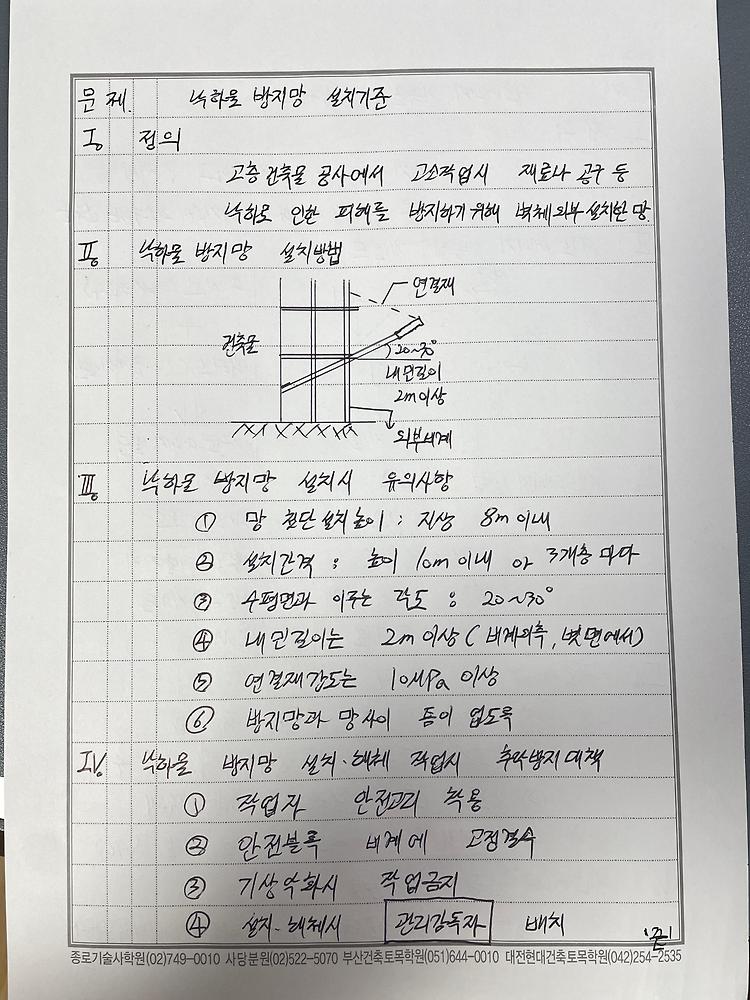 문제. 낙하물 방지망 설치기준
I. 정의
고층건축물 공사에서 고소작업시 재료나 공구 등
낙하로 인한 피해를 방지하기위해 벽체외부 설치한 망.
II. 낙하물 방지망 설치방법
연결재
건축물
20~30°
내민길이
2m이상
외부비계
III. 낙하물 방지망 설치시 유의사항
① 망 첫단설치높이 : 지상 8m이내
② 설치간격 : 높이 10m이내 or 3개층 마다
③ 수평면과 이루는 각도 : 20~30°
④ 내민길이는 2m이상 (비계외측, 벽면에서)
⑤ 연결재강도는 10MPa 이상
⑥ 방지망과 망사이 틈이 없도록
IV. 낙하물 방지망 설치·해체 작업시 추락방지대책
① 작업자 안전고리 착용
② 안전블록 비계에 고정결속
③ 기상악화시 작업금지
④ 설치·해체시 관리감독자 배치
'끝'
종로기술사학원(02)749-0010 사당분원(02)522-5070 부산건축토목학원(051)644-0010 대전현대건축토목학원(042)254-2535